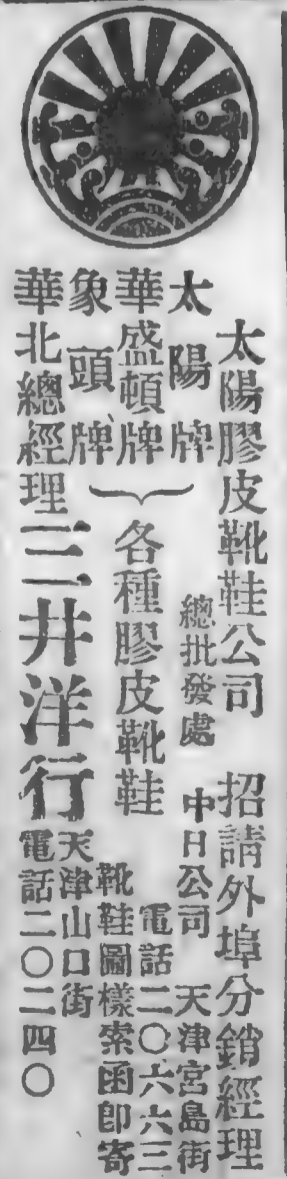 太陽膠皮靴鞋公司 招請外埠分銷經理
總批發處 中日公司 天津宮島街
電話二〇六六三
太陽牌
華盛頓牌
象頭牌
各種膠皮靴鞋
靴鞋圖樣索函即寄
華北總經理三井洋行
天津山口街
電話二〇二四〇